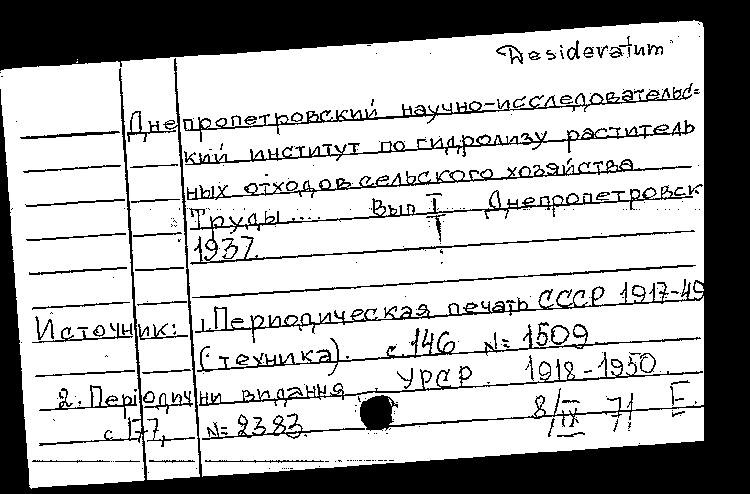 Desideratum
Днепропетровский научно-исследовательс=
кий институт по гидролизу раститель
ных отходов сельского хозяйства
Труды.... Вып I Днепропетровск
1937.
Источник: 1. Периодическая печать СССР 1917-49
(техника). с. 146 N= 1509
2. Періодични видання УРСР 1918-1950.
с 177, N= 2383.
8/IX 71 Е.